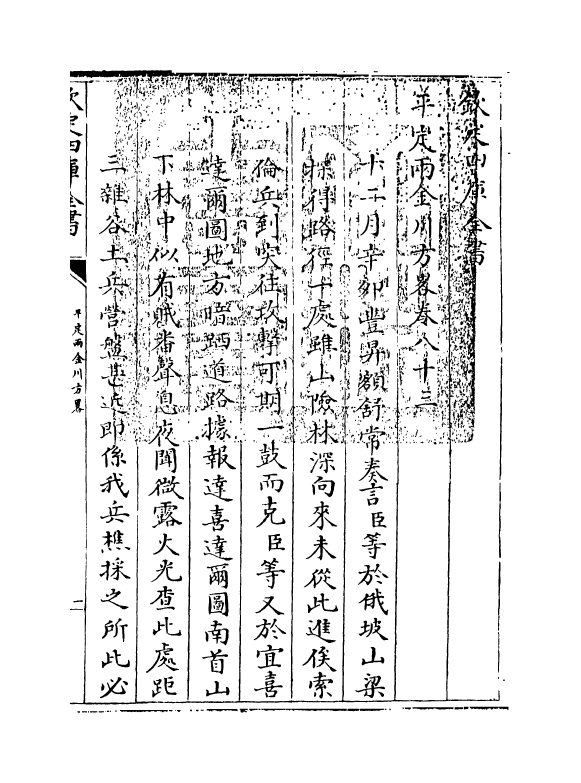 欽定四庫全書
平定兩金川方畧卷八十三
十二月辛卯豐昇額舒常奏言臣等於俄坡山梁
探得路徑十處雖山險林深向來未從此進俟索
倫兵到突徃攻擊可期一鼓而克臣等又於宜喜
達爾圖地方暗跴道路據報達喜達爾圖南首山
下林中似有賊番聲息夜聞微露火光查此處距
三雜谷土兵營盤甚近即係我兵樵採之所此必
欽定四庫全書
平定兩金川方畧